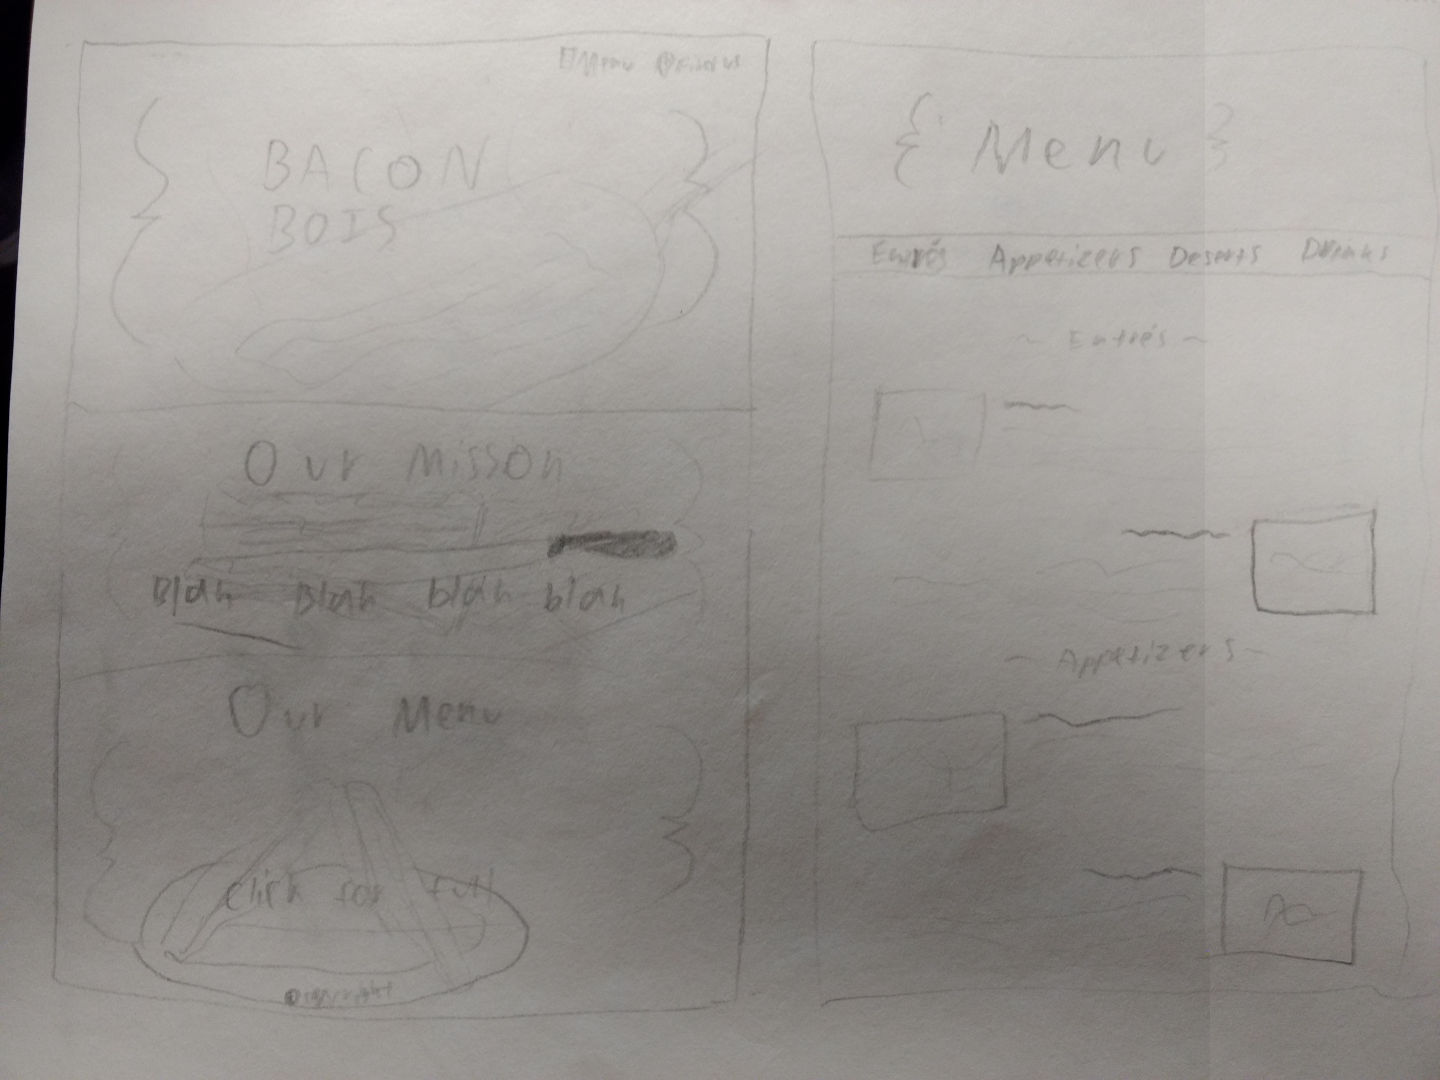 Menu
BACON
BOIS
Our Misson
Blah Blah blah blah
Our Menu
Click for full
©copyright
{ Menu }
Entrés Appetizers Deserts Drinks
~ Entrés ~
~ Appetizers ~